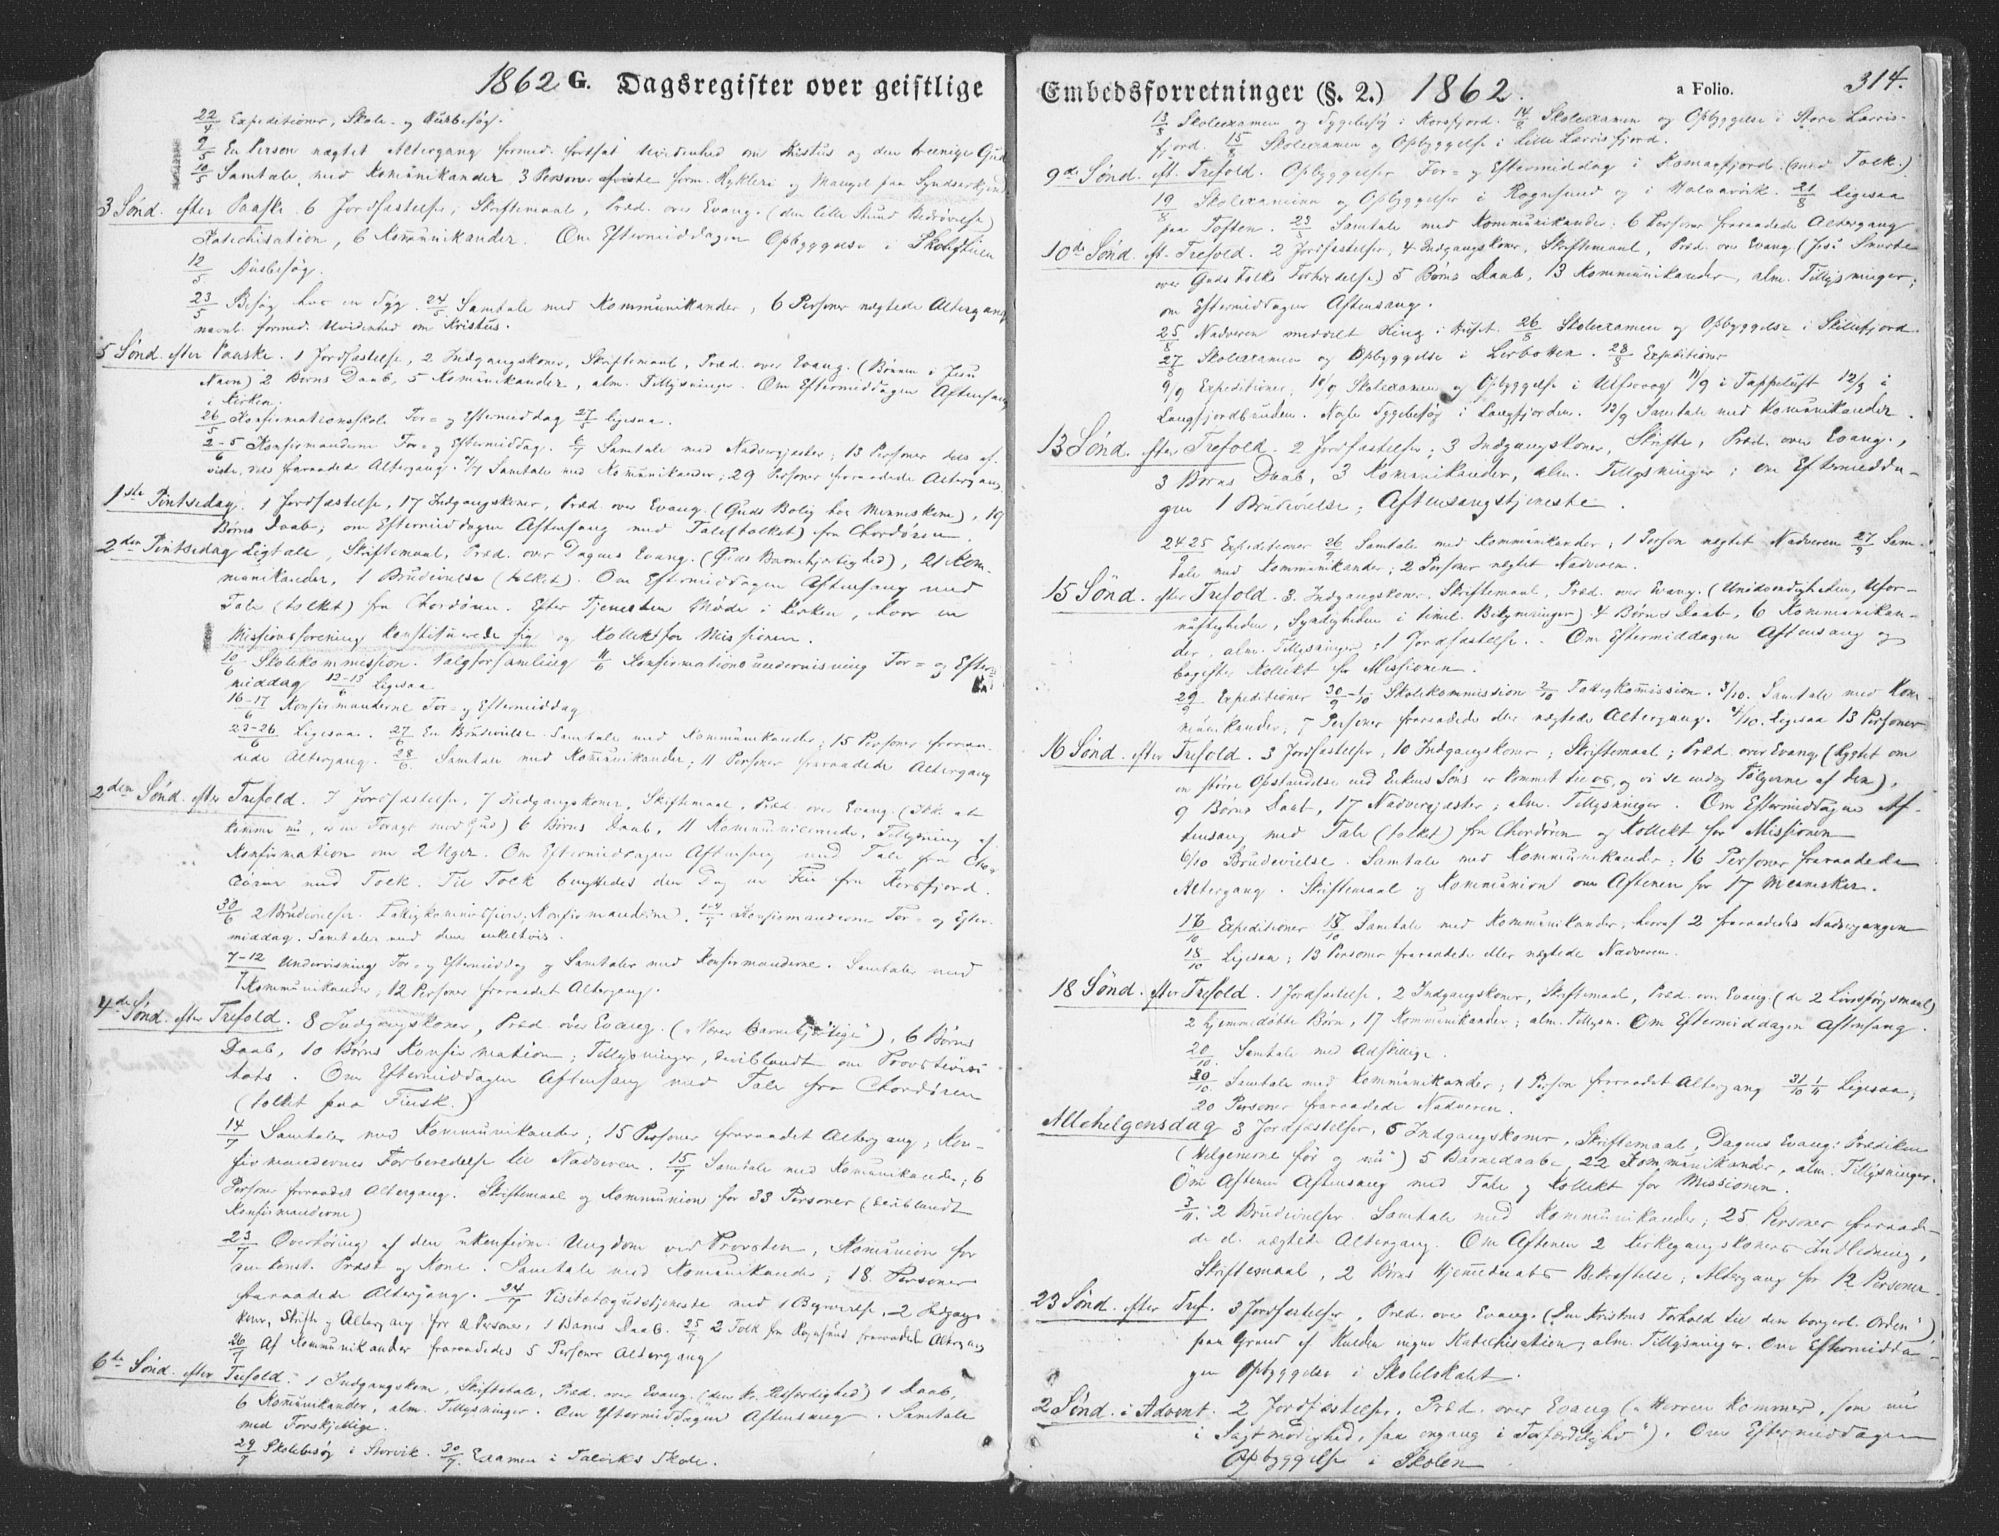 1862 G. Dagsregister over geistlige
22/4 Expeditioner, Skole- og Husbesøg.
9/5 En Person nægtet Altergang formed. fortsat Uvidenhed om Kristus og den treenige Gud
10/5 Samtale med Kommunikander 3 Personer afviste form. Hykleri og Mangel paa Syndserkjend
3 Sønd. efter Paaske. 6 Jordfæstelser, Skriftemaal, Præd. over Evang. (den lille Stund Bedrøvelse)
Katechisation, 6 Kommunikander. Om Eftermiddagen Opbyggelse i Skolestuen
12/5 Husbesøg.
23/5 Besøg hos en Syg. 24/5 Samtale med Kommunikander, 6 Personer nægtede Altergang
navnl. formed. Uvidenhed om Kristus.
5 Sønd. efter Paaske. 1 Jordfæstelse, 2 Indgangskoner, Skriftemaal, Præd. over Evang. (Bønnen i Jesu
Navn) 2 Børns Daab, 5 Kommunikander, alm. Tillysninger. Om Eftermiddagen Aftensang
i Kirken.
26/5 Konfirmationsskole For- og Eftermiddag 27/5 ligesaa.
2-5/6 Konfirmanderne For- og Eftermiddag. 6/ Samtale med Nadvergjæster; 13 Personer dels af-
viste, dels fraraadet Altergang. 7/ Samtale med Kommunikander; 29 Personer fraraadede Altergang
1ste Pintsedag. 1 Jordfæstelse, 17 Indgangskoner, Præd. over Evang. (Guds Bolig hos Menneskene), 19
Børns Daab; om Eftermiddagen Aftensang med Tale (tolket) fra Chordøren.
2den Pintsedag Ligtale, Skriftemaal, Præd. over Dagens Evang. (Guds Barmhjertighed), 21 Kom-
munikander, 1 Brudevielse (tolket). Om Eftermiddagen Aftensang med
Tale (tolket) fra Chordøren. Efter Tjenesten Møde i Kirken, hvor en
Missionsforening konstituerede sig og Kollekt for Missionen.
10/6 Skolekommission. Valgforsamling 11/6 Konfirmationsundervisning For- og Efter
middag 12-13/6 ligesaa.
16-17/6 Konfirmanderne For- og Eftermiddag
23-26/6 Ligesaa. 27/6 En Brudevielse. Samtale med Kommunikander; 15 Personer fraraa-
dede Altergang. 28/6 Samtale med Kommunikander; 11 Personer fraraadede Altergang
2den Sønd. efter Trefold. 7 Jordfæstelse, 7 Indgangskoner, Skriftemaal, Præd. over Evang. (Ikke at
komme nu, er en Foragt mod Gud) 6 Børns Daab, 11 Kommunicerende, Tillysning af
Konfirmation om 2 Uger. Om Eftermiddagen Aftensang med Tale fra Chor
døren med Tolk. Til Tolk benyttedes den Dag en Fin fra Korsfjord.
30/6 2 Brudevielser. Fattigkommission; Konfirmanderne. 1-4/7 Konfirmanderne For- og Efter-
middag. Samtaler med dem enkeltvis.
7-12/7 Undervisning For- og Eftermiddag og Samtaler med Konfirmanderne. Samtaler med
Kommunikander; 12 Personer fraraadet Altergang.
4de Sønd. efter Trefold. 8 Indgangskoner, Præd. over Evang. ("Værer Barmhjertige"), 6 Børns
Daab, 10 Børns Konfirmation; Tillysninger, iblandt om Provstevisi
tats. Om Eftermiddagen Aftensang med Tale fra Chordøren
(tolket paa Finsk.)
14/7 Samtaler med Kommunikander; 15 Personer fraraadet Altergang, Kon-
firmandernes Forberedelse til Nadveren. 15/7 Samtale med Kommunikander; 6
Personer fraraadet Altergang. Skriftemaal og Kommunion for 33 Personer (iblandt
Konfirmanderne)
23/7 Overhøring af den ukonfirm. Ungdom ved Provsten, Kommunion for
const. Præst og Kone. Samtale med Kommunikander; 18 Personer
fraraadede Altergang. 24/7 Visitatsgudstjeneste med 1 2 Indgangs
koner, Skrift og Altergang for Personer, 1 Barns Daab. 25/7 2 Folk fra Rognsund fraraadet Altergang
26/7 Af Kommunikander fraraadedes 5 Personer Altergang
6te Sønd. efter Trefold. 1 Indgangskone, Skriftetale, Præd. over Evang. (den Retfærdighed) 1 Daab,
6 Kommunikander, alm. Tillysninger. Om Eftermiddagen Aftensang. Samtale
med Forskjellige.
29/7 Skolebesøg i Storvik. 30/7 Examen i Talviks Skole.
Embedsforretninger (§. 2.) 1862.
a Folio. 314.
13/8 Skolexamen og Sygebesøg i Korsfjord. 14/8 Skolexamen og Opbyggelse i Store Lerris-
fjord. 15/8 Skolexamen og Opbyggelse i Lille Lerrisfjord.
9de Sønd. eft. Trefold. Opbyggelse For- og Eftermiddag i Komagfjord. (med Tolk.)
19/8 Skolexamen og Opbyggelse i Rognsund og i 21/8 ligesaa
paa Toften. 23/8 Samtale med Kommunikander; 6 Personer fraraadede Altergang
10de Sønd. eft. Trefold. 2 Jordfæstelser, 4 Indgangskoner, Skriftemaal, Præd. over Evang. (Jesu Smerte
over Guds Folks Forhærdelse) 5 Børns Daab, 13 Kommunikander, alm. Tillysninger;
om Eftermiddagen Aftensang.
25/8 Nadveren meddelt i Huset. 26/8 Skolexamen og Opbyggelse i Skillefjord.
27/8 Skolexamen og Opbyggelse i Lerbotten. 28/8 Expeditioner
9/9 Expeditioner, 10/9 Skolexamen og Opbyggelse i Ulfsvaag 11/9 i Tappeluft 12/9 i
Langfjordbunden. Nogle Sygebesøg i Langfjorden. 13/9 Samtale med Kommunikander.
13 Sønd. efter Trefold. 2 Jordfæstelser, 3 Indgangskoner, Skrifte, Præd. over Evang.,
3 Børns Daab, 3 Kommunikander, alm. Tillysninger; om Eftermidda-
gen 1 Brudevielse; Aftensangstjeneste.
24 25/9 Expeditioner 26/9 Samtale med Kommunikander; 1 Person nægtet Nadveren 27/9 Sam-
tale med Kommunikander; 2 Personer nægtet Nadveren.
15 Sønd. efter Trefold. 3 Indgangskoner, Skriftemaal, Præd. over Evang. (Unødvendigheden, Ufor-
nuftigheden, Syndigheden i timel. Bekymringer) 4 Børns Daab, 6 Kommunikan-
der, alm. Tillysninger; 1 Jordfæstelse. Om Eftermiddagen Aftensang og
bagefter Kollekt for Missionen.
29/9 Expeditioner 30/9-1/10 Skolekommission 2/10 Fattigkommission. 3/10. Samtale med Kom
munikander, 7 Personer fraraadede eller nægtede Altergang. 4/10. Ligesaa 13 Personer
16 Sønd. efter Trefold. 3 Jordfæstelser, 10 Indgangskoner, Skriftemaal, Præd. over Evang. (Rygtet om
en større Opstandelse end Enkens Søns er kommet til os, og vi se endog Følgerne af den),
9 Børns Daab, 17 Nadvergjæster, alm. Tillysninger. Om Eftermiddagen Af-
tensang med Tale (tolket) fra Chordøren og Kollekt for Missionen
6/10 Brudevielse. Samtale med Kommunikander; 16 Personer fraraadede
Altergang. Skriftemaal og Kommunion om Aftenen for 17 Mennesker.
16/10 Expeditioner 17/10 Samtale med Kommunikander, hvoraf 2 fraraadedes Nadvergangen
18/10 Ligesaa; 13 Personer fraraadede eller nægtede Nadveren.
18 Sønd. efter Trefold. 1 Jordfæstelse, 2 Indgangskoner, Skriftemaal, Præd. over Evang. (de 2 Livsspørgsmaal)
2 hjemmedøbte Børn, 17 Kommunikander; alm. Tillysn. Om Eftermiddagen Aftensang.
20/10. Samtale med Adskillige.
30/10. Samtale med Kommunikander; 1 Person fraraadet Altergang 31/10 1/11 Ligesaa;
20 Personer fraraadede Nadveren.
Allehelgensdag 3 Jordfæstelser, 5 Indgangskoner, Skriftemaal, Dagens Evang: Prædiken
(Helgenerne før og nu") 5 Barnedaabe, 22 Kommunikander, alm. Tillysninger.
Om Aftenen Aftensang med Tale og Kollekt for Missionen.
3/11. 2 Brudevielser. Samtale med Kommunikander; 25 Personer fraraade-
de el. nægtede Altergang. Om Aftenen 2 Kirkegangskoners Indledning,
Skriftemaal, 2 Børns Hjemmedaabs Bekræftelse; Altergang for 12 Personer.
23 Sønd. efter Tref. 3 Jordfæstelser, Præd. over Evang. (En Kristens Forhold til den borgerl. Orden"),
paa Grund af Kulden ingen Katechisation, alm. Tillysninger. Om Eftermidda-
gen Opbyggelse i Skolelokalet.
2 Sønd. i Advent. 2 Jordfæstelser, Præd. over Evang ("Herren kommer, som nu
i Sagtmodighed, saa engang i Forfærdelighd"). Om Eftermiddagen
Opbyggelse i Skolen